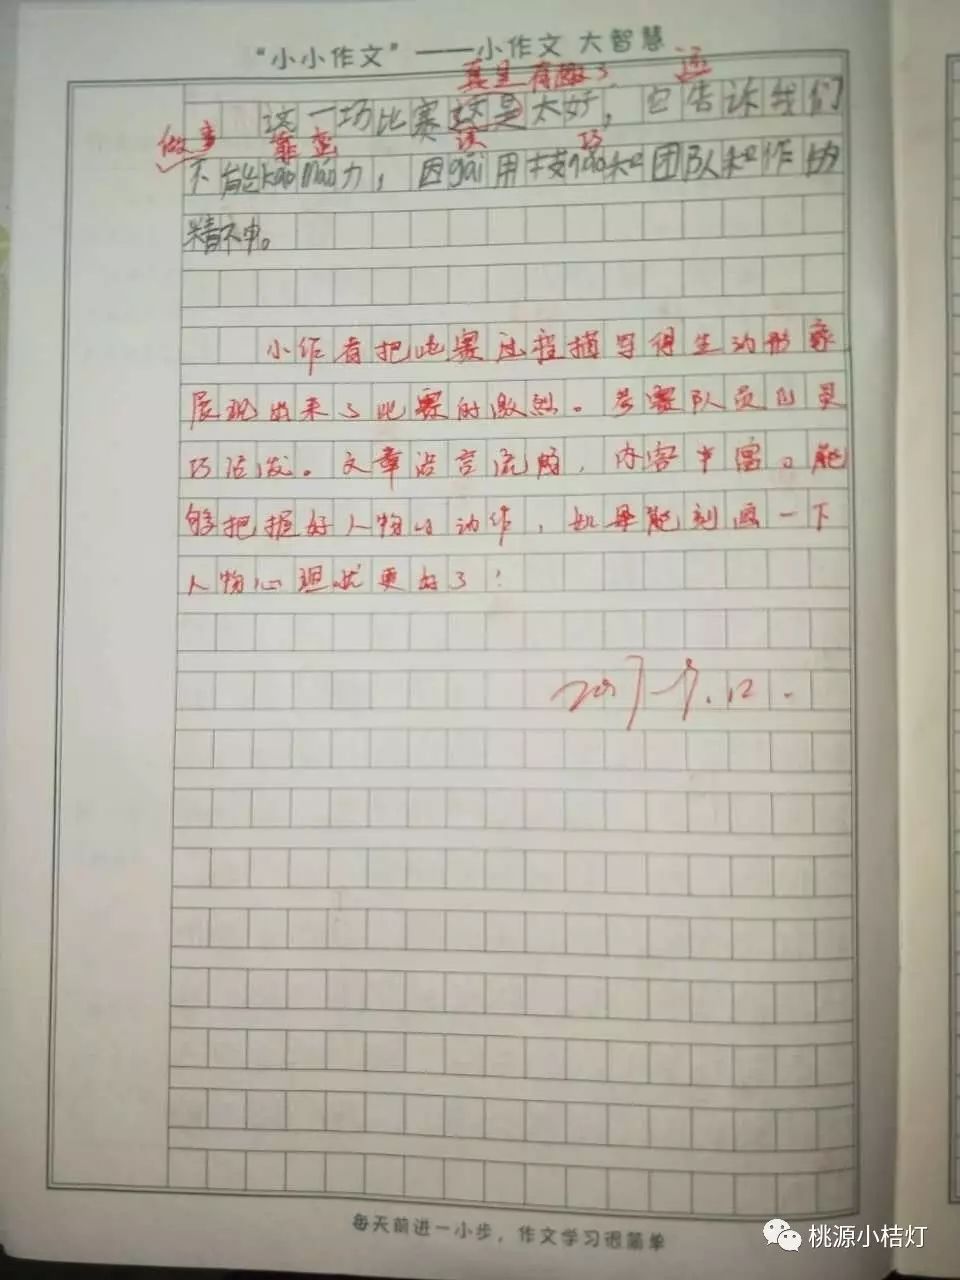 “小小作文”——小作文 大智慧
真是有趣了 还
这一场比赛这是太好，它告诉我们
做事 靠蛮 该 巧
不能kào mán力，因gāi用技qiǎo和团队和作的
精神。
小作者把比赛过程描写得生动形象
展现出来了比赛的激烈。参赛队员的灵
巧活发。文章语言流畅，内容丰富。能
够把握好人物的动作，如果能刻画一下
人物心理就更好了！
每天前进一小步，作文学习很简单
桃源小桔灯